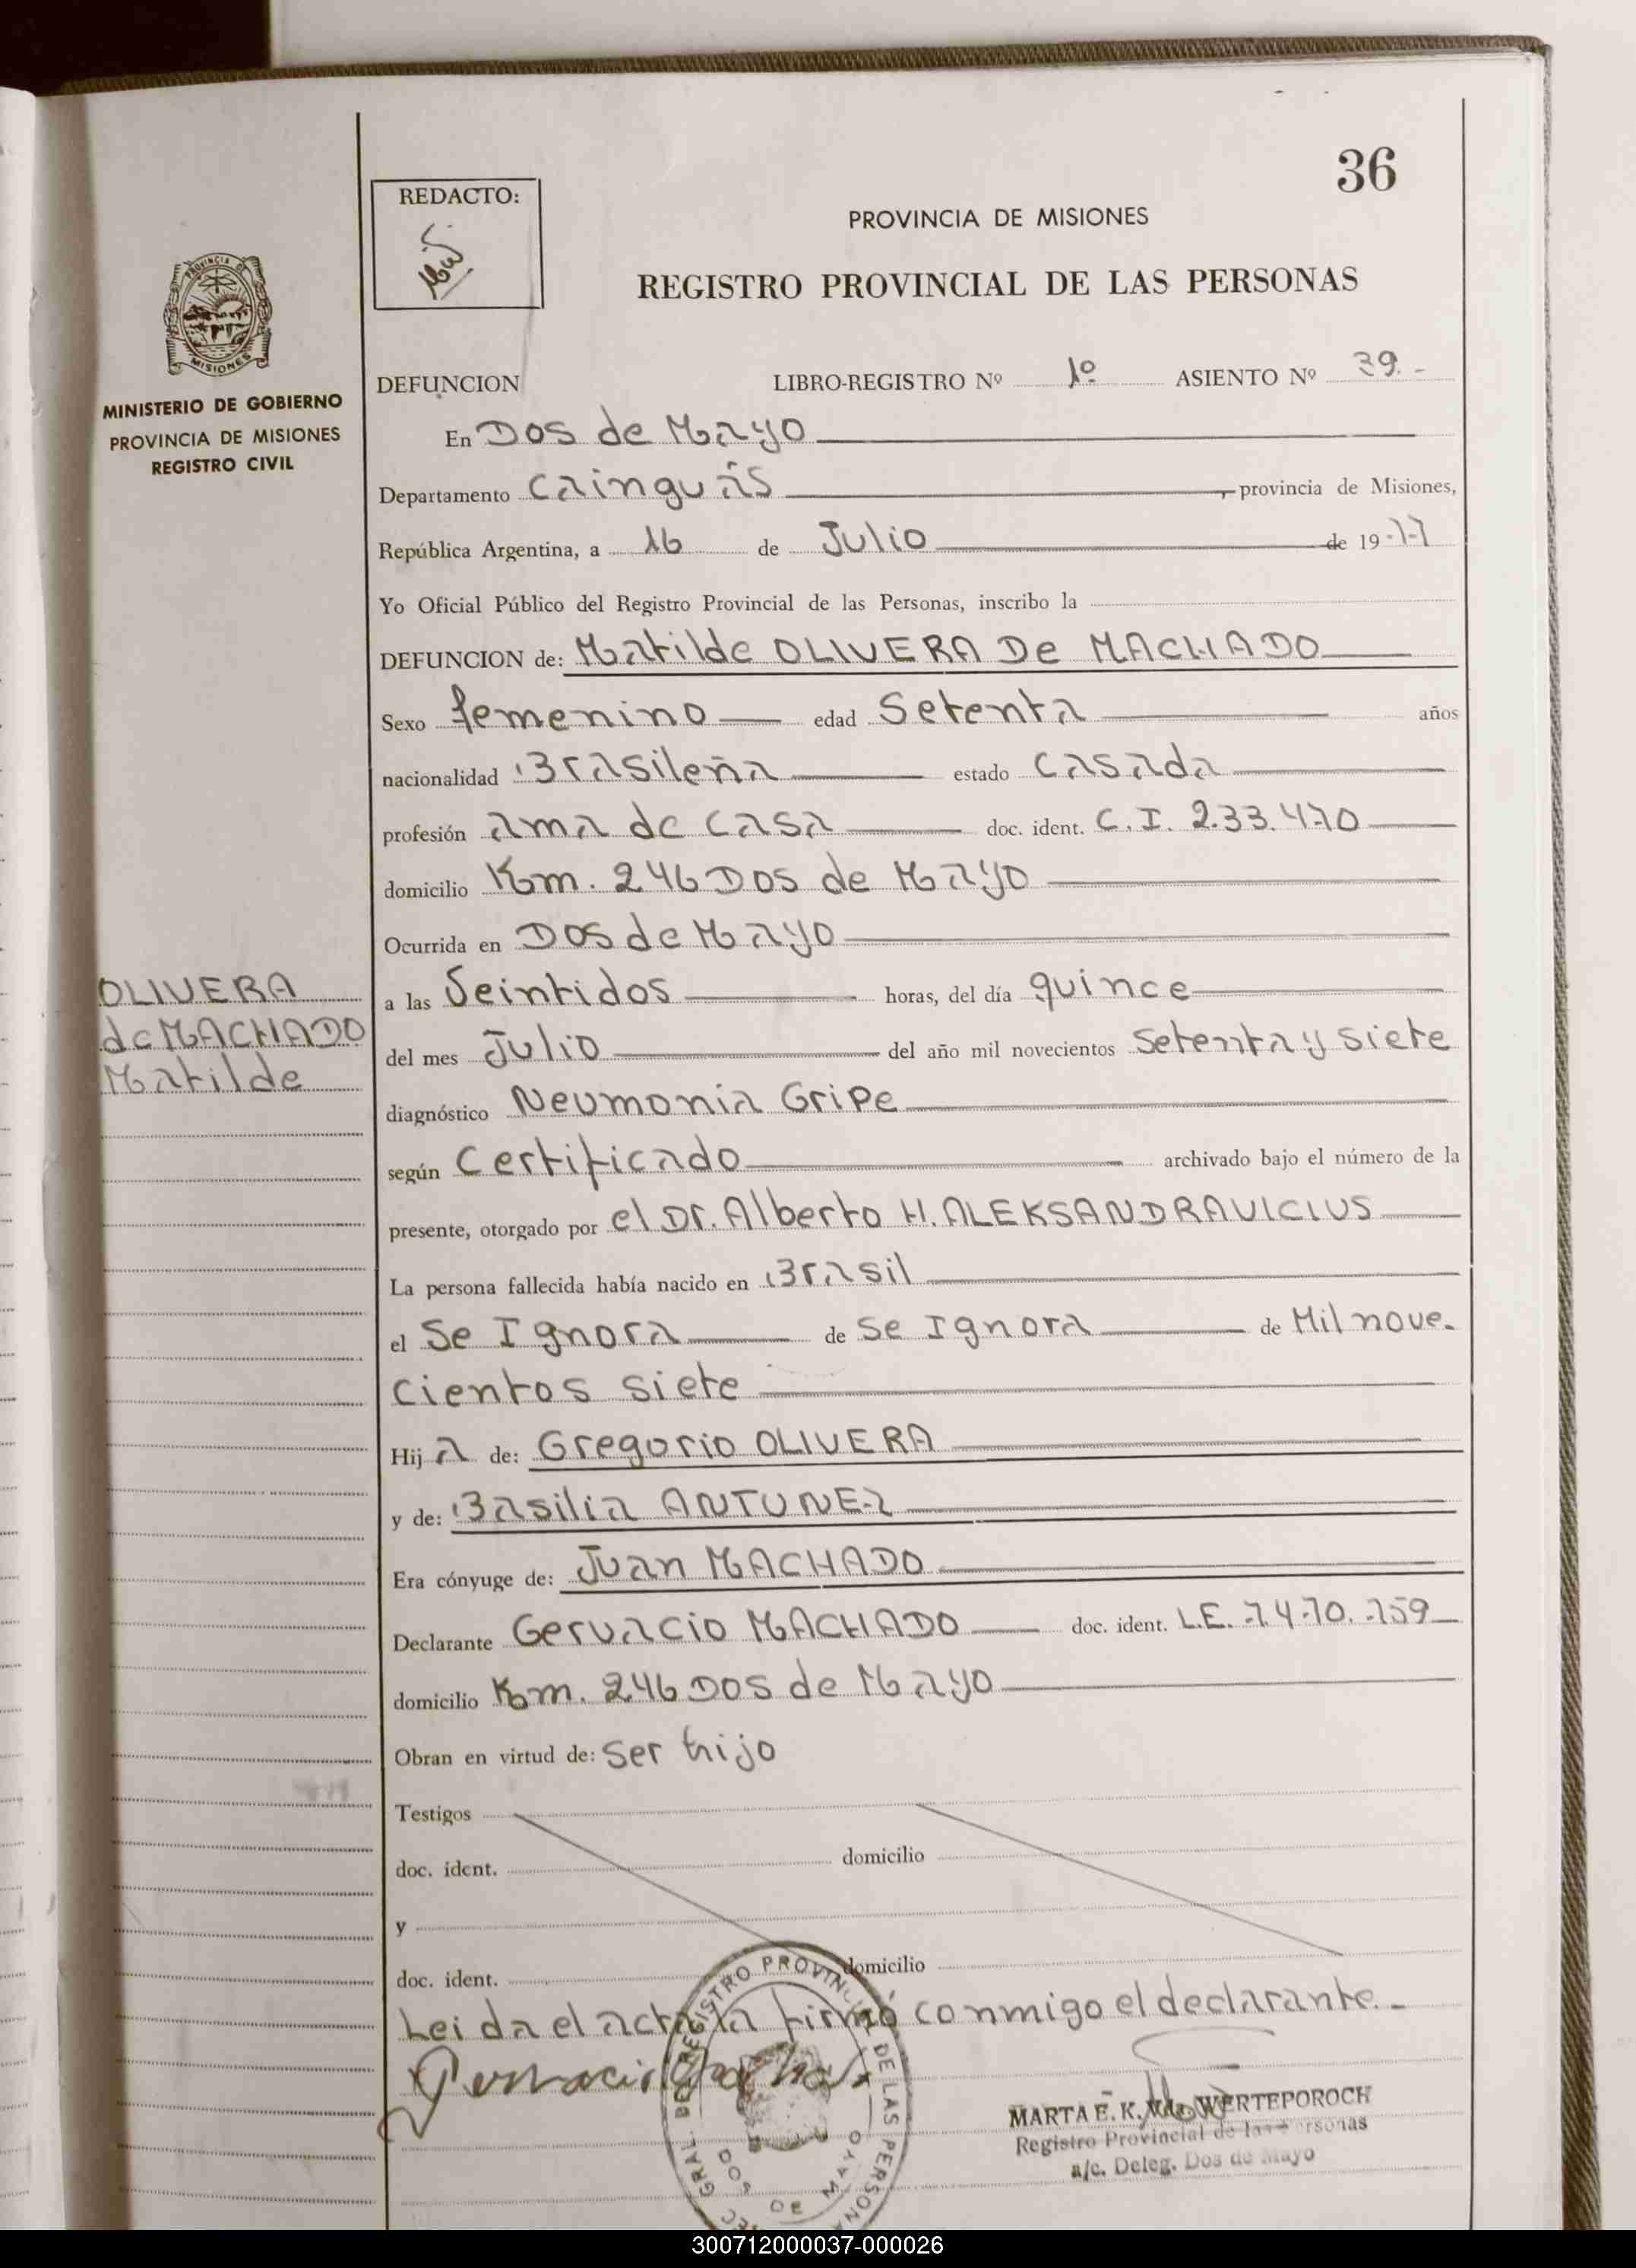 36
REDACTO:
PROVINCIA DE MISIONES
REGISTRO PROVINCIAL DE LAS PERSONAS
PROVINCIA DE
MISIONES
MINISTERIO DE GOBIERNO
PROVINCIA DE MISIONES
REGISTRO CIVIL
DEFUNCION LIBRO-REGISTRO Nº 1º ASIENTO Nº 39.-
En Dos de Mayo
Departamento Cainguás, provincia de Misiones,
República Argentina, a 16 de Julio de 19 77
Yo Oficial Público del Registro Provincial de las Personas, inscribo la
DEFUNCION de: Matilde OLIVERA De MACHADO
Sexo femenino edad Setenta años
nacionalidad Brasileña estado Casada
profesión ama de casa doc. ident. C.I. 2.33.470
domicilio Km. 246 Dos de Mayo
Ocurrida en Dos de Mayo
OLIVERA
de MACHADO
Matilde
a las Veintidos horas, del día quince
del mes Julio del año mil novecientos Setenta y siete
diagnóstico Neumonia Gripe
según Certificado archivado bajo el número de la
presente, otorgado por el Dr. Alberto H. ALEKSANDRAVICIUS
La persona fallecida había nacido en Brasil
el Se Ignora de Se Ignora de Mil nove-
cientos siete
Hij a de: Gregorio OLIVERA
y de: Basilia ANTUNEZ
Era cónyuge de: Juan MACHADO
Declarante Gervacio MACHADO doc. ident. L.E. 7.470.759
domicilio Km. 246 Dos de Mayo
Obran en virtud de: Ser hijo
Testigos
doc. ident. domicilio
y
doc. ident. domicilio
Leida el acta, la firmó conmigo el declarante.-
REGISTRO PROVINCIAL DE LAS PERSONA
GRAL. DE
DOS DE MAYO
MARTA E. K. Vda. WERTEPOROCH
Registro Provincial de las Personas
a/c. Deleg. Dos de Mayo
300712000037-000026